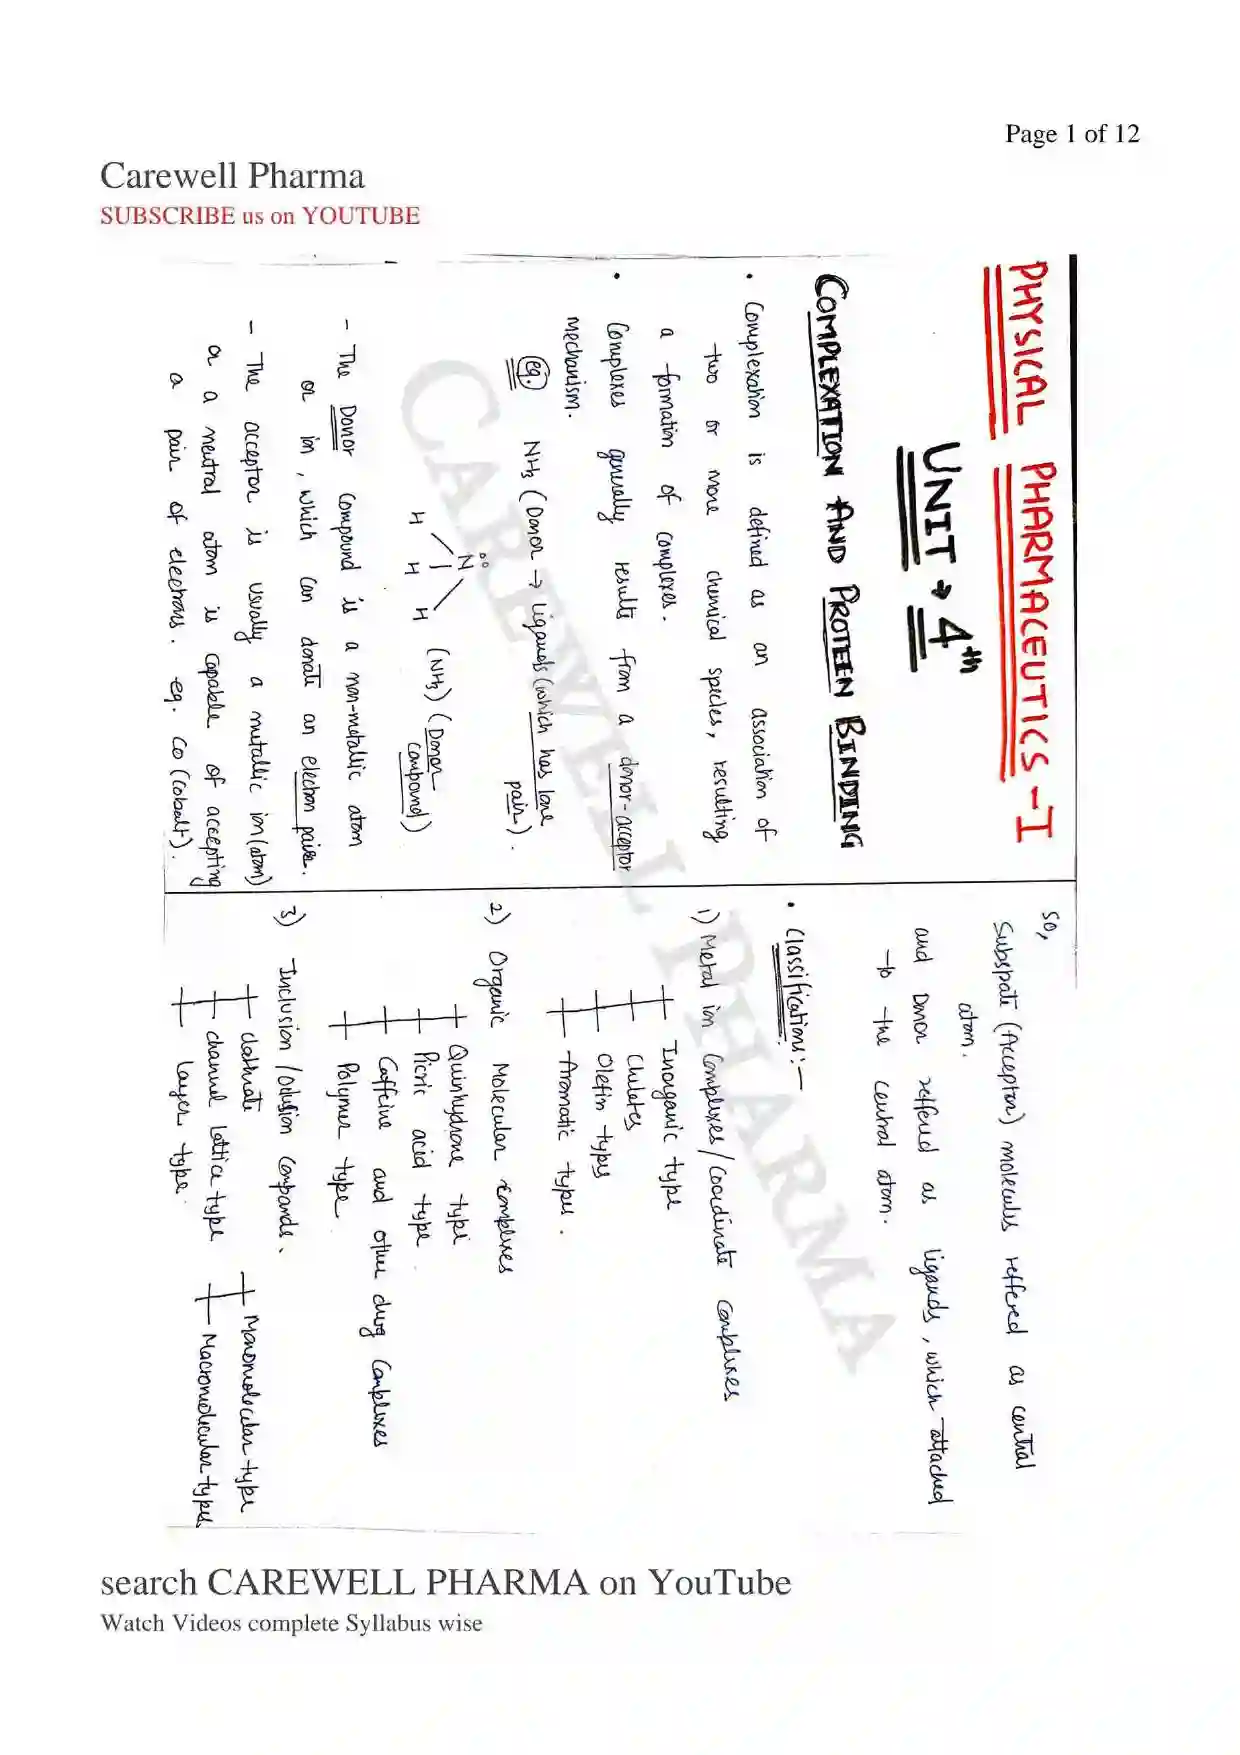 Page 1 of 12
Carewell Pharma
SUBSCRIBE us on YOUTUBE
PHYSICAL PHARMACEUTICS - I
UNIT → 4th
COMPLEXATION AND PROTEEN BINDING
• Complexation is defined as an association of
two or more chemical species, resulting
a formation of complexes.
• Complexes generally results from a donor-acceptor
mechanism.
eg. NH3 (Donor → ligands (which has lone
pair).
N
H H H
(NH3) (Donor
compound)
- The Donor compound is a non-metallic atom
or in, which can donate an electron pair.
- The acceptor is usually a metallic ion (atom)
or a neutral atom is capable of accepting
a pair of electrons. eg. Co (Cobalt).
So,
Subspate (Acceptor) molecules reffered as central
atom.
and Donor reffered as ligands, which attached
to the central atom.
• Classifications:-
1) Metal ion Complexes/Coordinate Complexes
Inorganic type
Chelates
Olefin types
Aromatic types.
2) Organic Molecular complexes
Quinhydrone type
Picric acid type
Caffeine and other drug Complexes
Polymer type.
3) Inclusion / Occlusion Compounds.
clathrate
channel lattice type
Layer type.
Monomolecular type
Macromolecular types
CAREWELL PHARMA
search CAREWELL PHARMA on YouTube
Watch Videos complete Syllabus wise